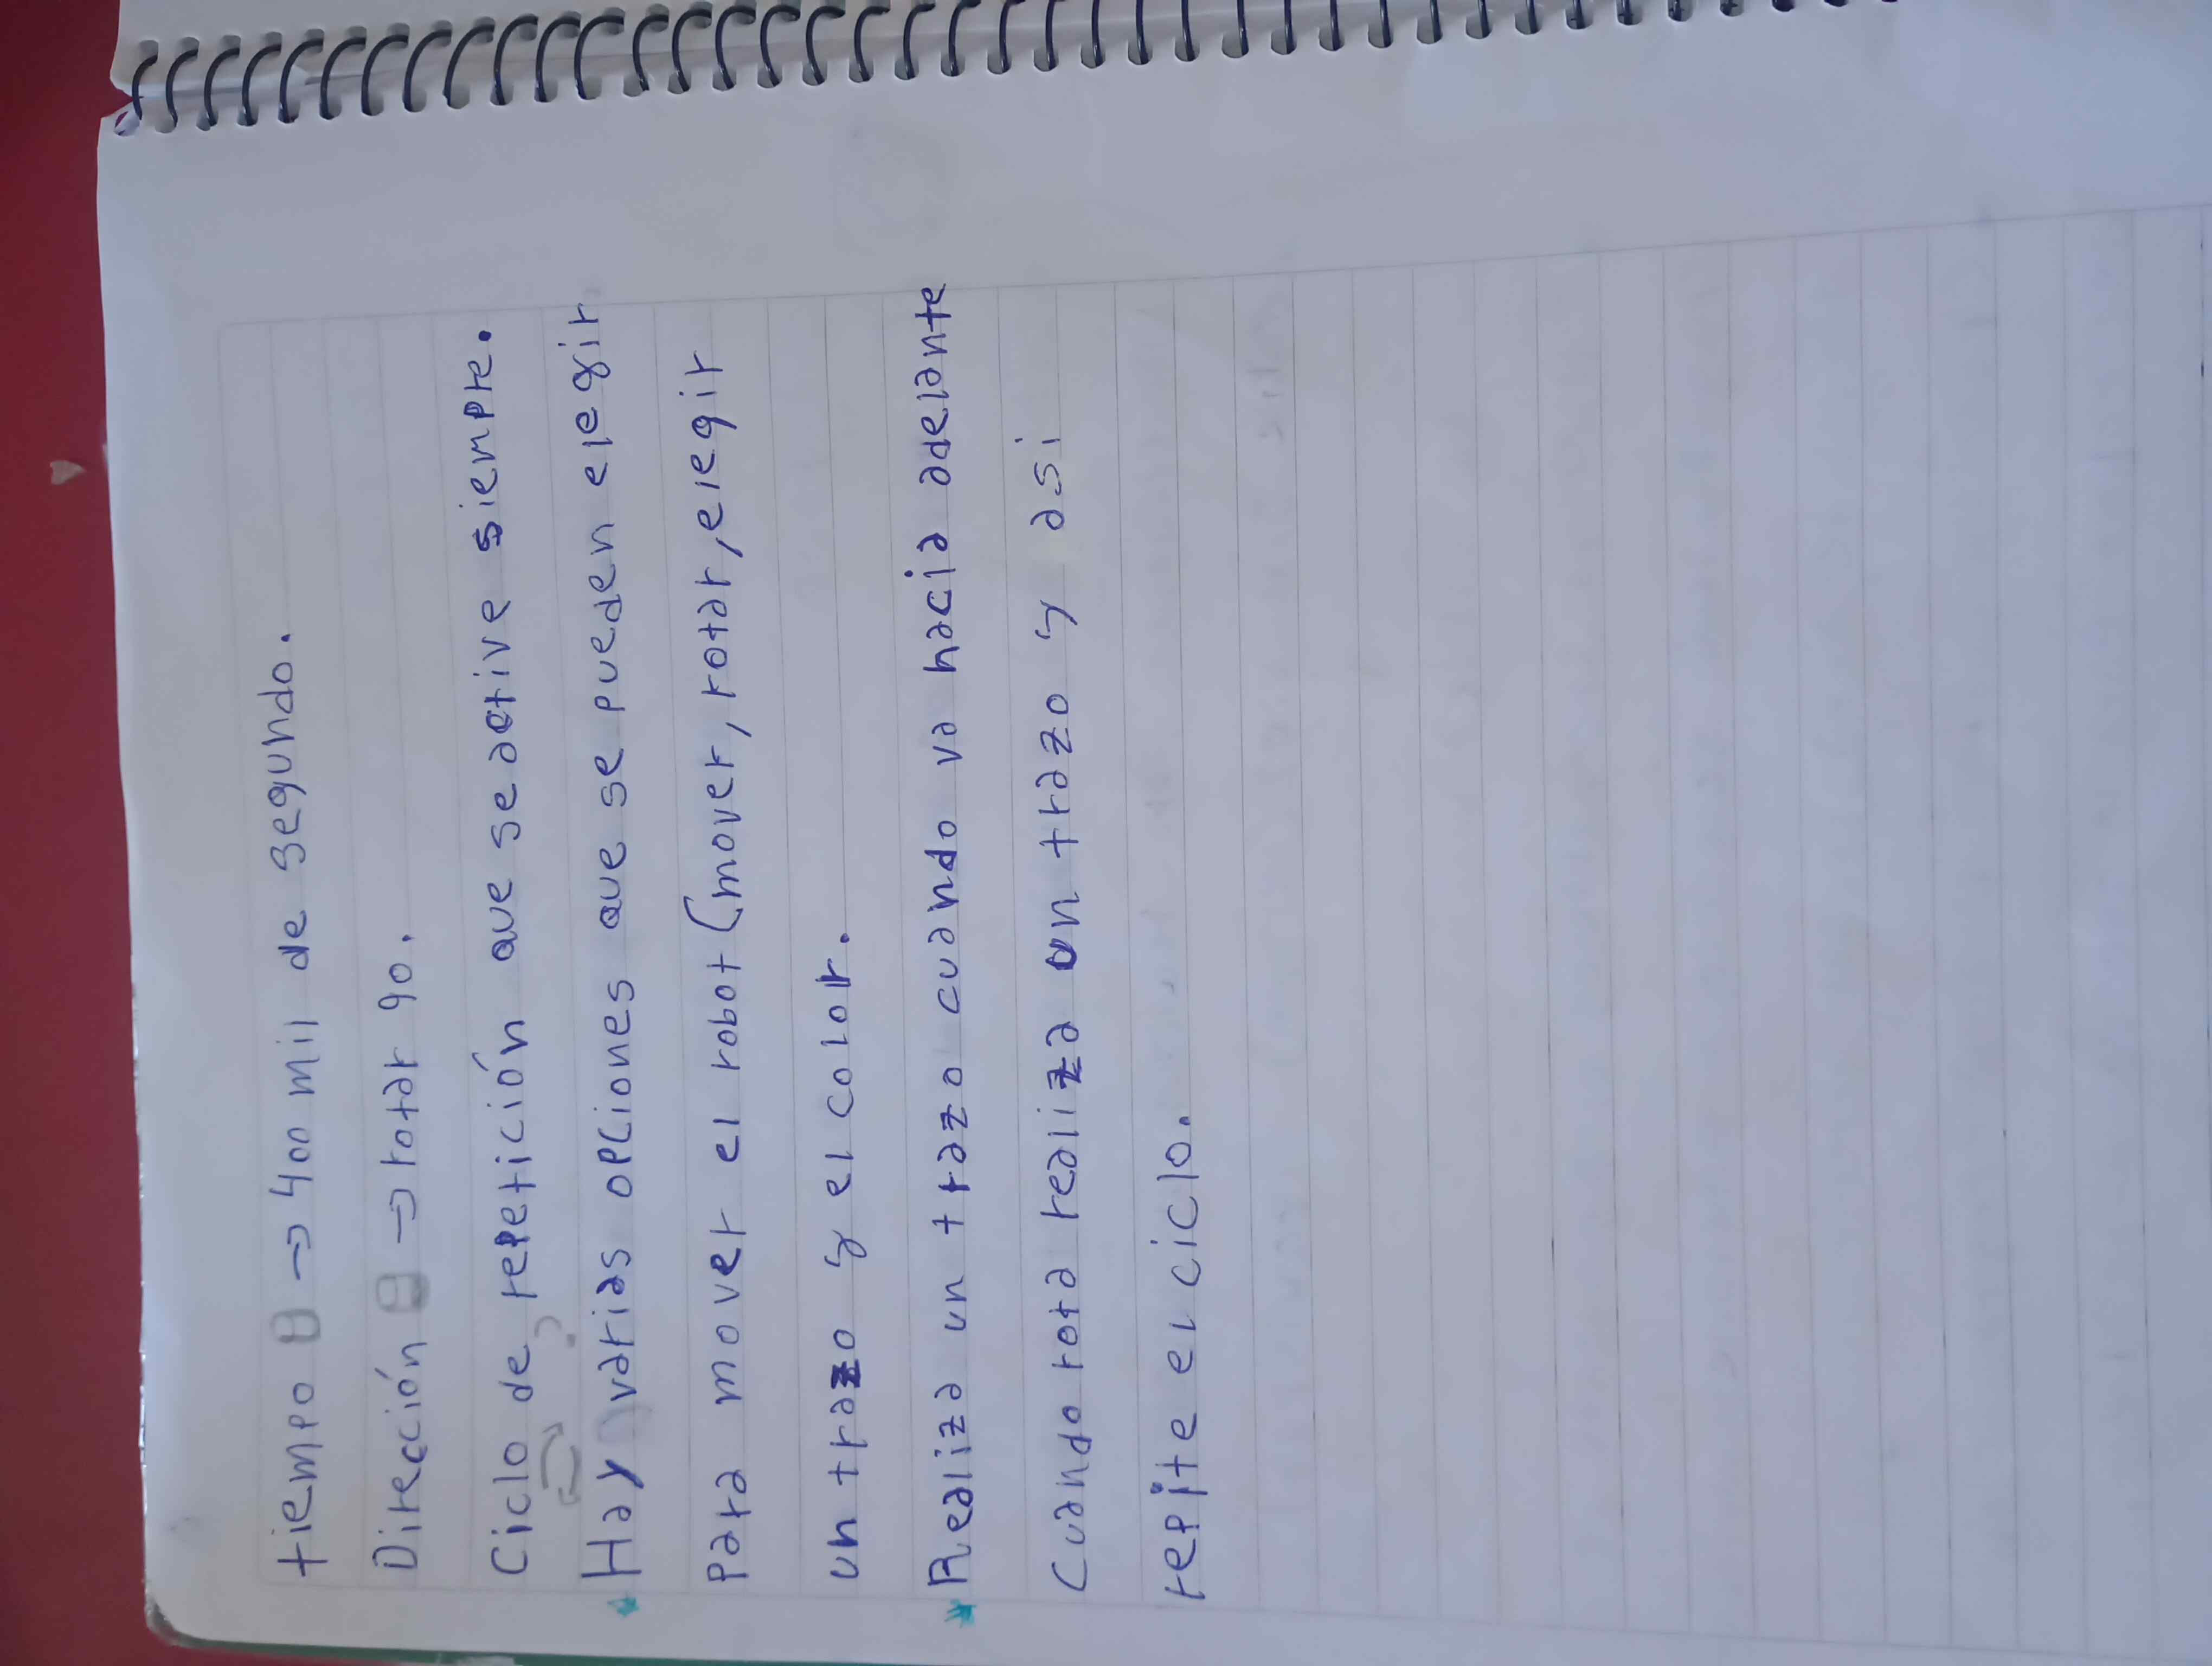 tiempo → 400 mil de segundo.
Dirección → rotar 90.
Ciclo de repetición que se active siempre.
* Hay varias opciones que se pueden elegir
para mover el robot (mover, rotar, elegir
un trazo y el color.
* Realiza un trazo cuando va hacia adelante
Cuando rota realiza un trazo y asi
repite el ciclo.